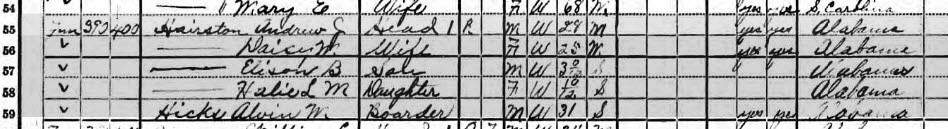 54 — " Mary E Wife F W 68 M yes yes S. Carolina
55 Jnn 393 400 Hairston Andrew J Head 1 R M W 28 M yes yes Alabama
56 — Daisey M. Wife F W 25 M yes yes Alabama
57 — Elison B Son M W S Alabama
58 — Halie L M Daughter F W S Alabama
59 Hicks Alvin W. Boarder M W 31 S yes yes